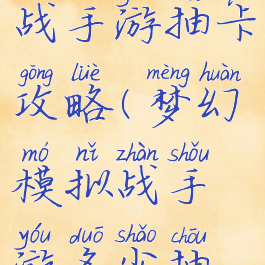 战手游抽卡
gōng lüè mèng huàn
攻略(梦幻
mó nǐ zhàn shǒu
模拟战手
yóu duō shǎo chōu
游多少抽